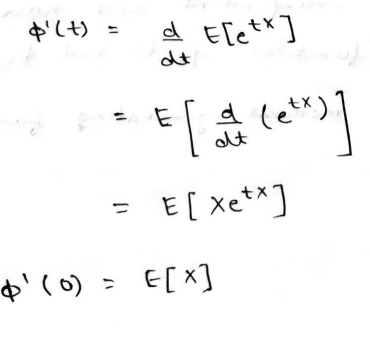 ϕ'(t) = d/dt E[e^{tX}]
= E[d/dt (e^{tX})]
= E[Xe^{tX}]
ϕ'(0) = E[X]